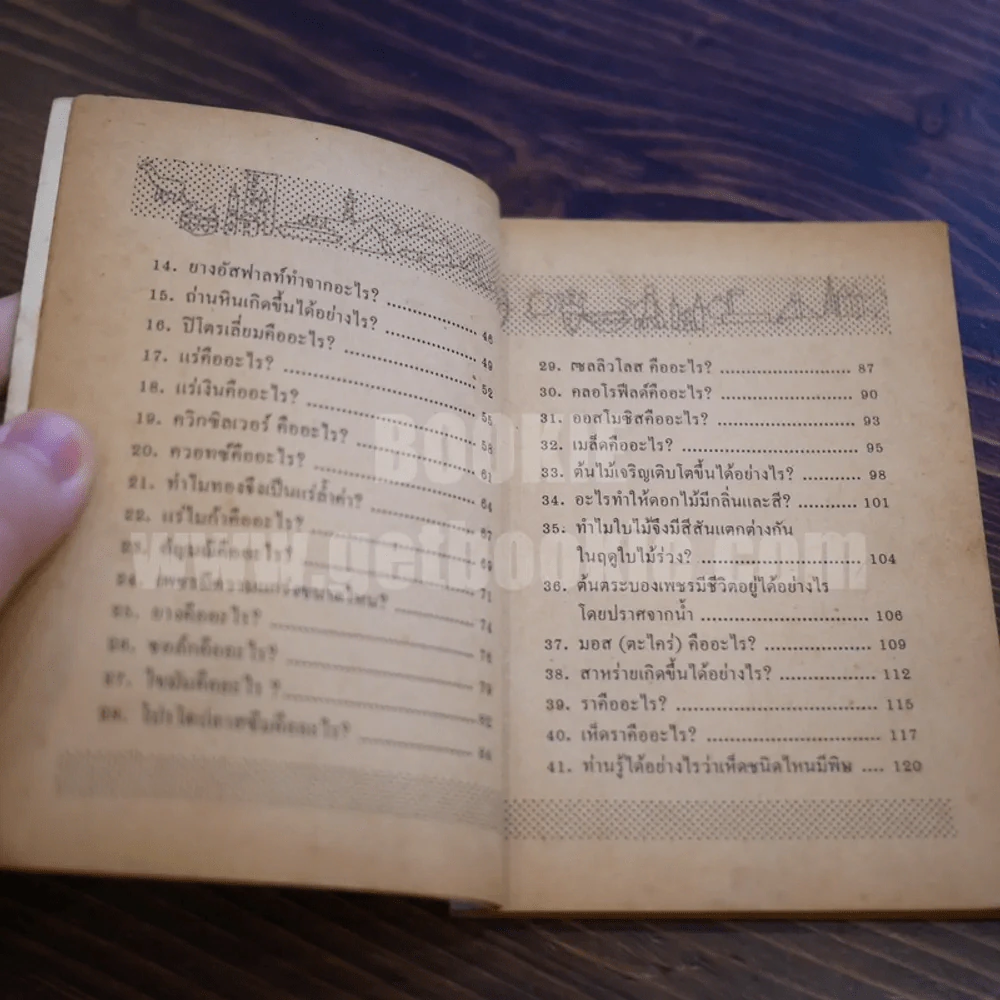 14. ยางอัสฟาลท์ทำจากอะไร? .................. 46
15. ถ่านหินเกิดขึ้นได้อย่างไร? .................. 49
16. ปิโตรเลี่ยมคืออะไร? .................. 52
17. แร่คืออะไร? .................. 55
18. แร่เงินคืออะไร? .................. 58
19. ควิกซิลเวอร์ คืออะไร? .................. 61
20. ควอทซ์คืออะไร? .................. 64
21. ทำไมทองจึงเป็นแร่ล้ำค่า? .................. 67
22. แร่ไมก้าคืออะไร? .................. 69
23. คืออะไร? .................. 71
24. เพชรมีความแกร่งขนาดไหน? .................. 74
25. ยางคืออะไร? .................. 76
26. คืออะไร? .................. 79
27. ไขมันคืออะไร ? .................. 82
28. คืออะไร? ..................
29. เซลลิวโลส คืออะไร? .................. 87
30. คลอโรฟีลด์คืออะไร? .................. 90
31. ออสโมซิสคืออะไร? .................. 93
32. เมล็ดคืออะไร? .................. 95
33. ต้นไม้เจริญเติบโตขึ้นได้อย่างไร? .......... 98
34. อะไรทำให้ดอกไม้มีกลิ่นและสี? .......... 101
35. ทำไมใบไม้จึงมีสีสันแตกต่างกัน
ในฤดูใบไม้ร่วง? .................. 104
36. ต้นตระบองเพชรมีชีวิตอยู่ได้อย่างไร
โดยปราศจากน้ำ .................. 106
37. มอส (ตะไคร่) คืออะไร? .................. 109
38. สาหร่ายเกิดขึ้นได้อย่างไร? .................. 112
39. ราคืออะไร? .................. 115
40. เห็ดราคืออะไร? .................. 117
41. ท่านรู้ได้อย่างไรว่าเห็ดชนิดไหนมีพิษ .... 120